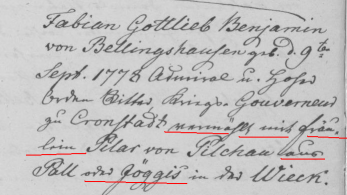 Fabian Gottlieb Benjamin
von Bellingshausen geb. d. 9te
Sept. 1778 Admiral u. Hoher
Orden Ritter, Kriegs-Gouverneur
zu Cronstadt vermählt mit Fräu-
lein Pilar von Pilchau aus
Pall oder Joggis in der Wieck.